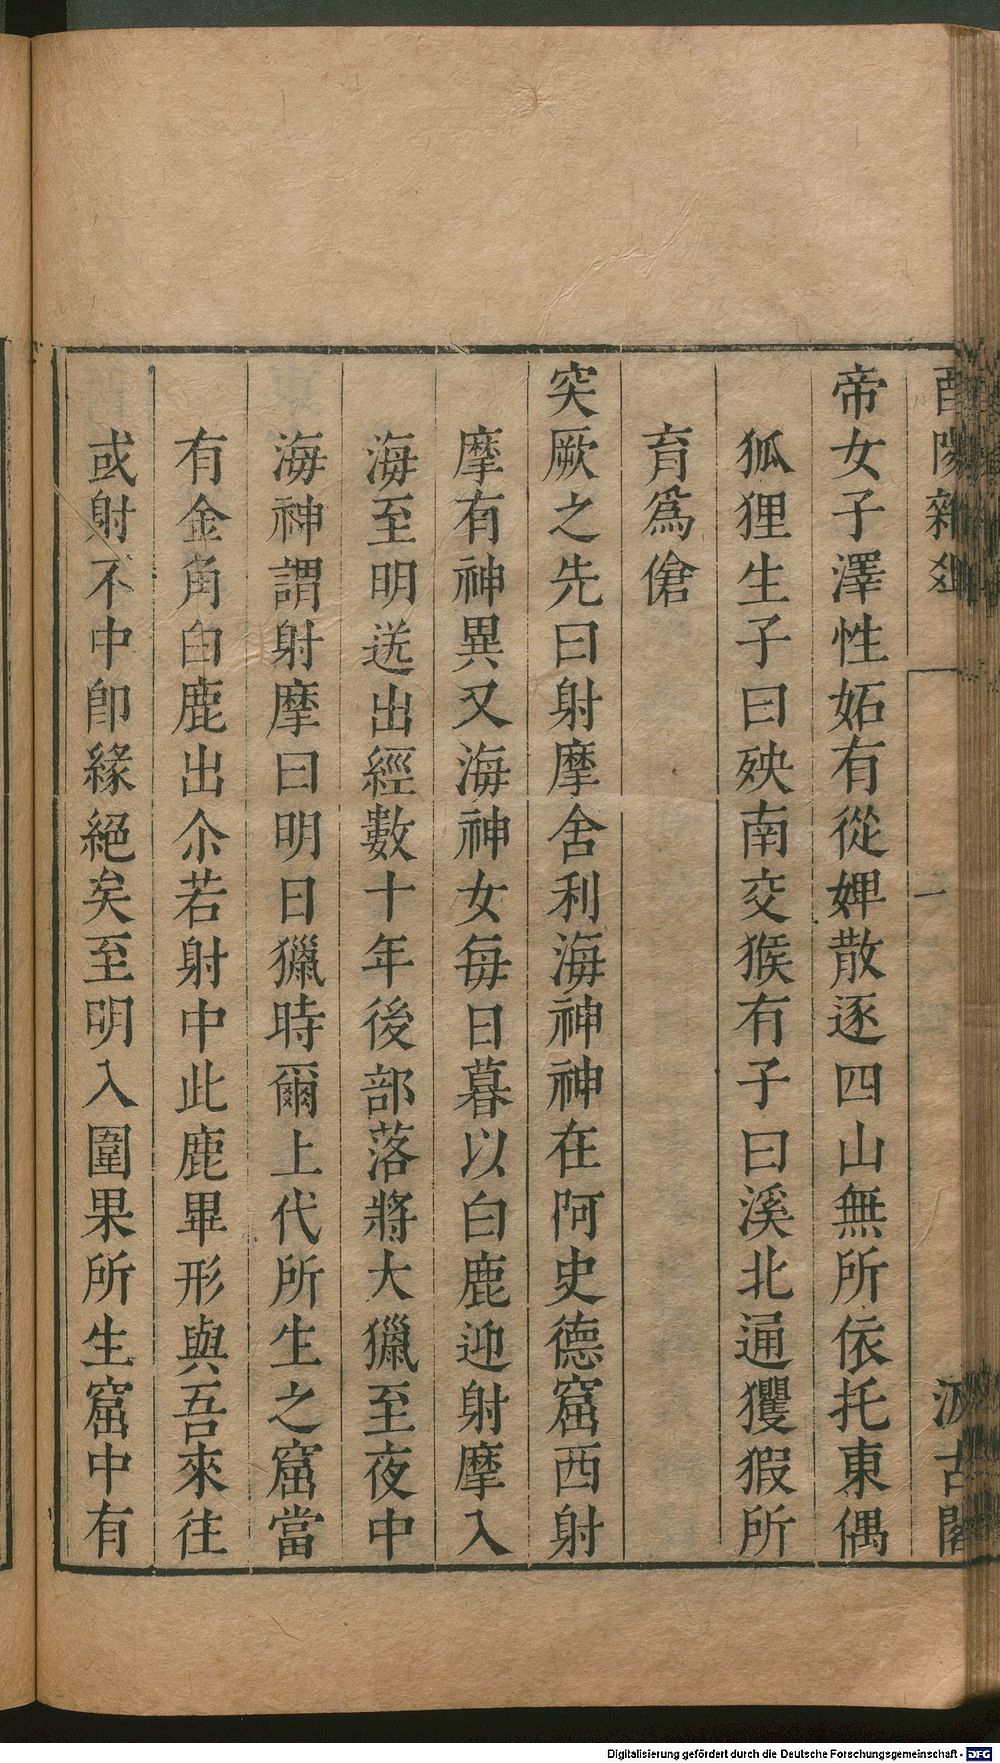 酉陽雜俎
一
汲古閣
帝女子澤性妬有從婢散逐四山無所依托東偶
狐狸生子曰殃南交猴有子曰溪北通玃猳所
育爲傖
突厥之先曰射摩舍利海神神在阿史德窟西射
摩有神異又海神女每日暮以白鹿迎射摩入
海至明送出經數十年後部落將大獵至夜中
海神謂射摩曰明日獵時爾上代所生之窟當
有金角白鹿出尒若射中此鹿畢形與吾來往
或射不中卽緣絕矣至明入圍果所生窟中有
Digitalisierung gefördert durch die Deutsche Forschungsgemeinschaft - DFG